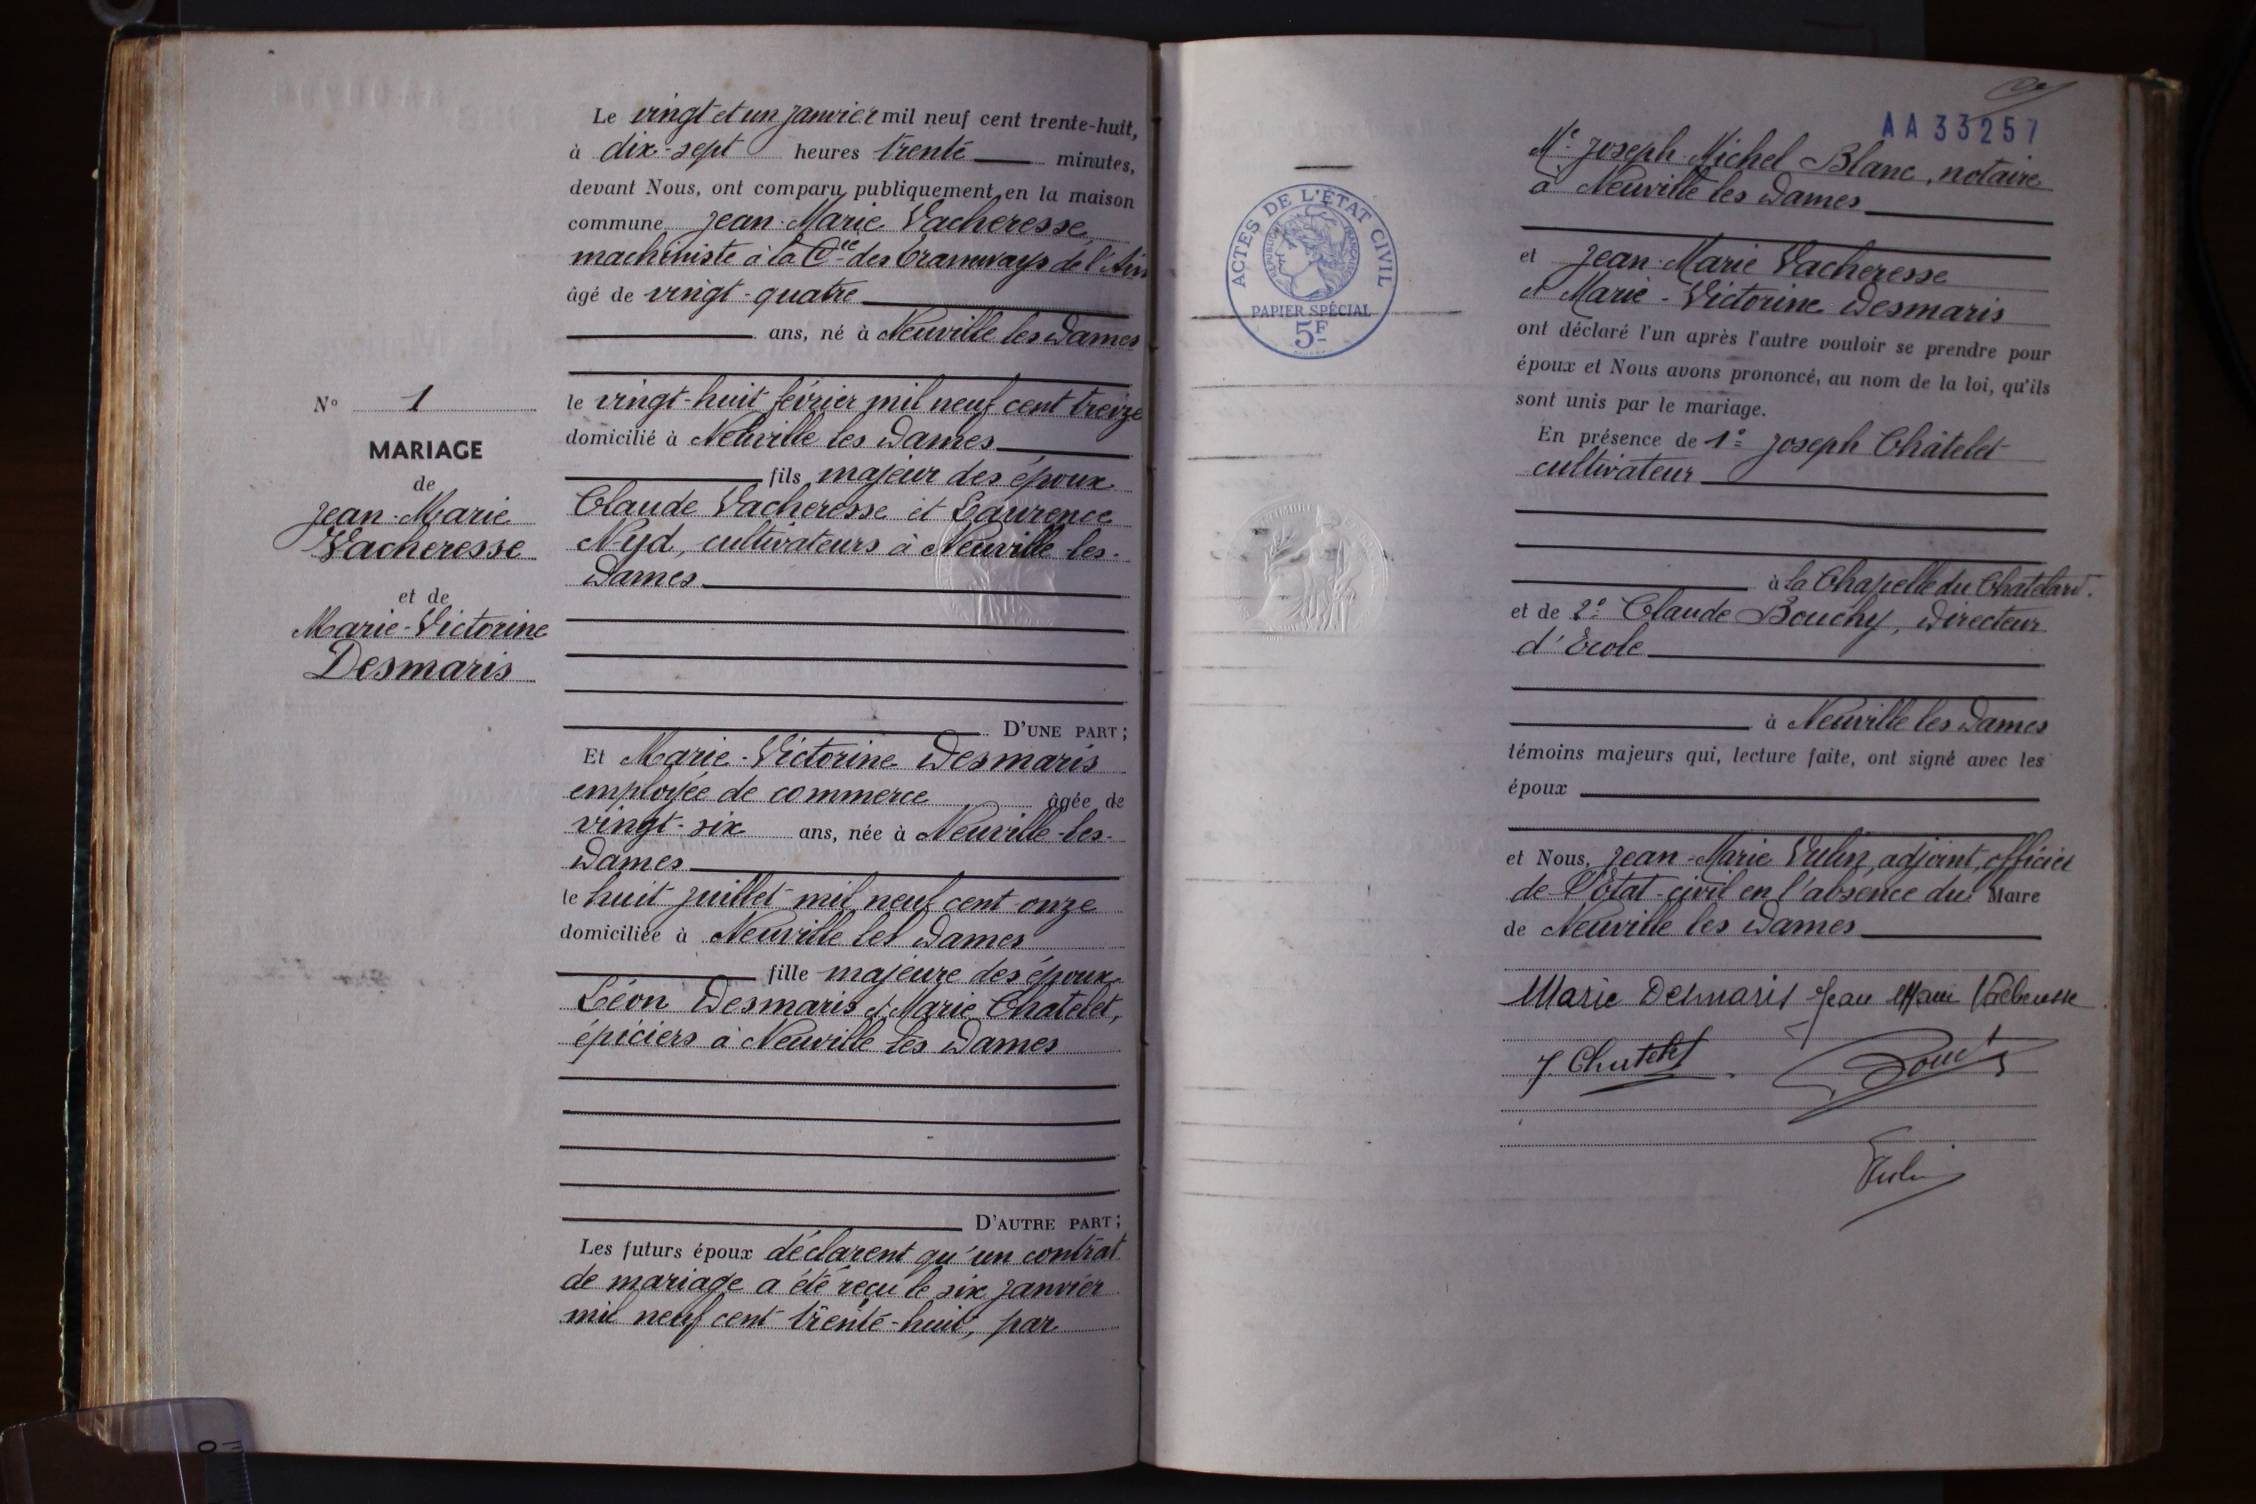 Le vingt et un janvier mil neuf cent trente-huit,
à dix-sept heures trente minutes,
devant Nous, ont comparu publiquement en la maison
commune Jean-Marie Vacheresse
machiniste à la Cie des Tramways de l'Ain
âgé de vingt-quatre
ans, né à Neuville les Dames
le vingt-huit février mil neuf cent treize
domicilié à Neuville les Dames
fils majeur des époux
Claude Vacheresse et Laurence
Nyd, cultivateurs à Neuville-les-
Dames
D'UNE PART ;
Nº 1
MARIAGE
de
Jean-Marie
Vacheresse
et de
Marie-Victorine
Desmaris
Et Marie-Victorine Desmaris
employée de commerce âgée de
vingt-six ans, née à Neuville-les-
Dames
le huit juillet mil neuf cent onze
domiciliée à Neuville les Dames
fille majeure des époux
Léon Desmaris et Marie Chatelet,
épiciers à Neuville les Dames
D'AUTRE PART ;
Les futurs époux déclarent qu'un contrat
de mariage a été reçu le six janvier
mil neuf cent trente-huit, par
ACTES DE L'ÉTAT CIVIL
RÉPUBLIQUE FRANÇAISE
PAPIER SPÉCIAL
5F
AA33257
Me Joseph-Michel Blanc, notaire
à Neuville les Dames
et Jean-Marie Vacheresse
et Marie-Victorine Desmaris
ont déclaré l'un après l'autre vouloir se prendre pour
époux et Nous avons prononcé, au nom de la loi, qu'ils
sont unis par le mariage.
En présence de 1º Joseph Châtelet
cultivateur
à la Chapelle du Chatelard.
et de 2º Claude Bouchy, Directeur
d'Ecole
à Neuville les Dames
témoins majeurs qui, lecture faite, ont signé avec les
époux
et Nous, Jean-Marie Vulin, adjoint, officier
de l'état-civil en l'absence du Maire
de Neuville les Dames
Marie Desmaris Jean Marie Vacheresse
J. Chatelet Bouchy
Vulin